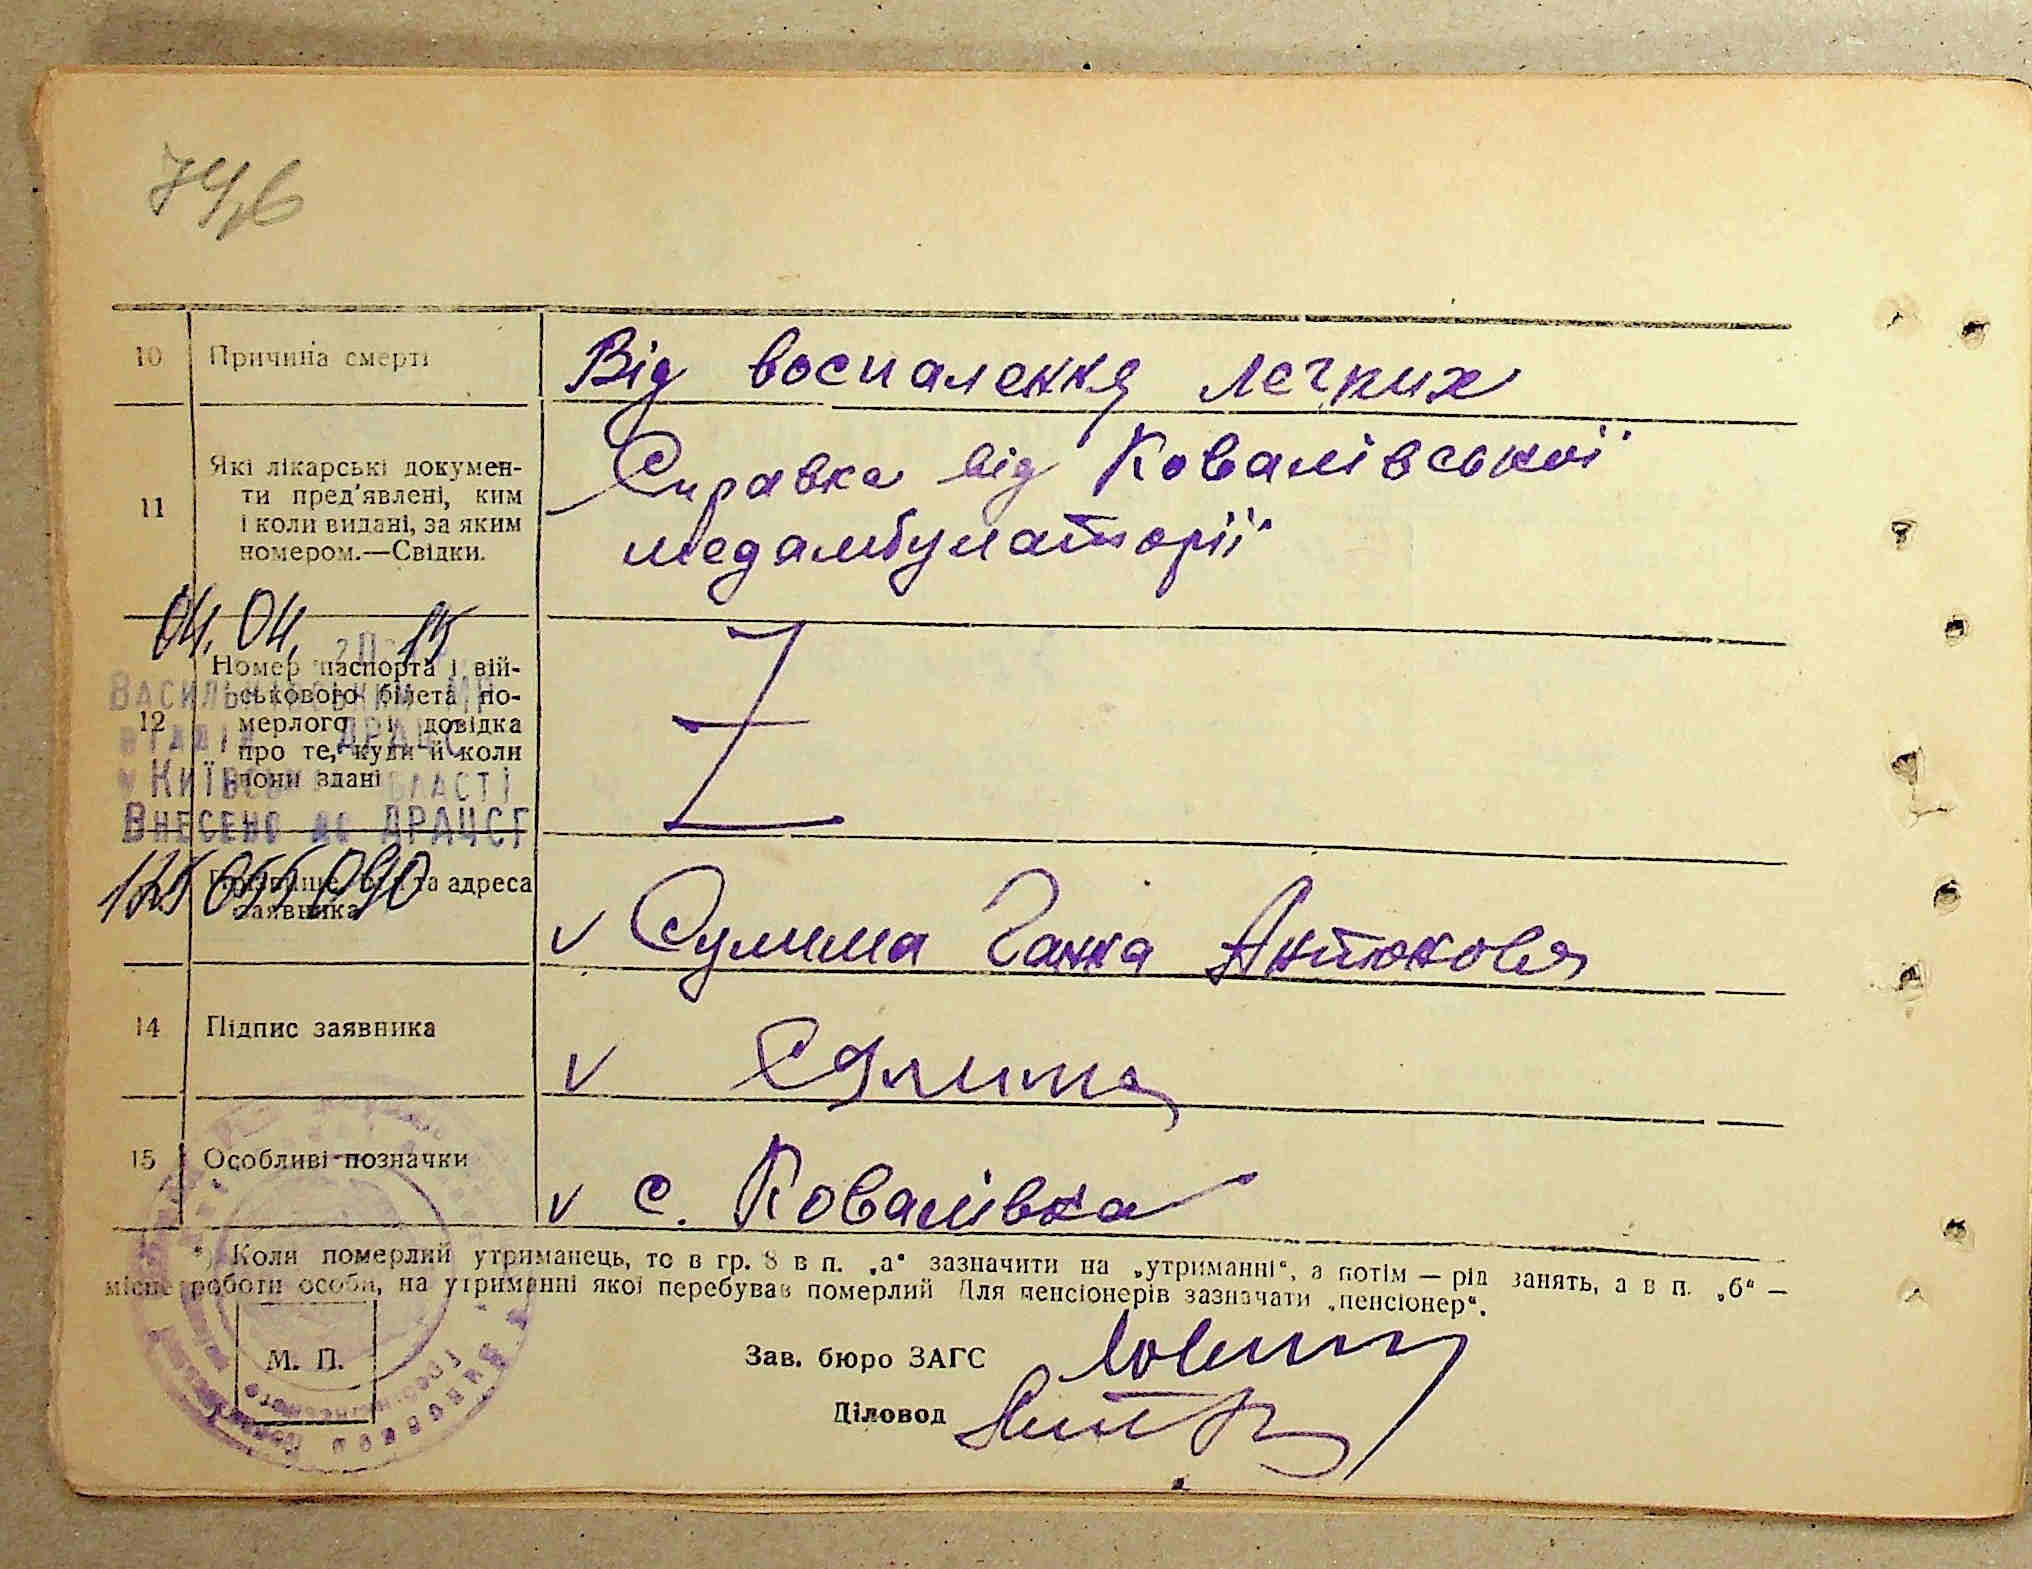 10 Причина смерті Від воспалення легких
11 Які лікарські докумен-
ти пред'явлені, ким
і коли видані, за яким
номером.—Свідки.
Справка від Ковалівської
медамбулаторії
04.04. 15
12 Номер паспорта і вій-
ськового білета по-
мерлого і довідка
про те, куди й коли
вони здані
Z
Васильківський МР
відділ ДРАЦС
у Київській області
Внесено до ДРАЦСГ
125 055 090
Прізвище, ім'я та адреса
заявника
v Сулима Ганна Антонова
14 Підпис заявника v Сулима
15 Особливі позначки v с. Ковалівка
*) Коли померлий утриманець, то в гр. 8 в п. „а“ зазначити на „утриманні“, а потім — рід занять, а в п. „б“ —
місце роботи особи, на утриманні якої перебував померлий Для пенсіонерів зазначати „пенсіонер“.
М. П.
Зав. бюро ЗАГС
Діловод